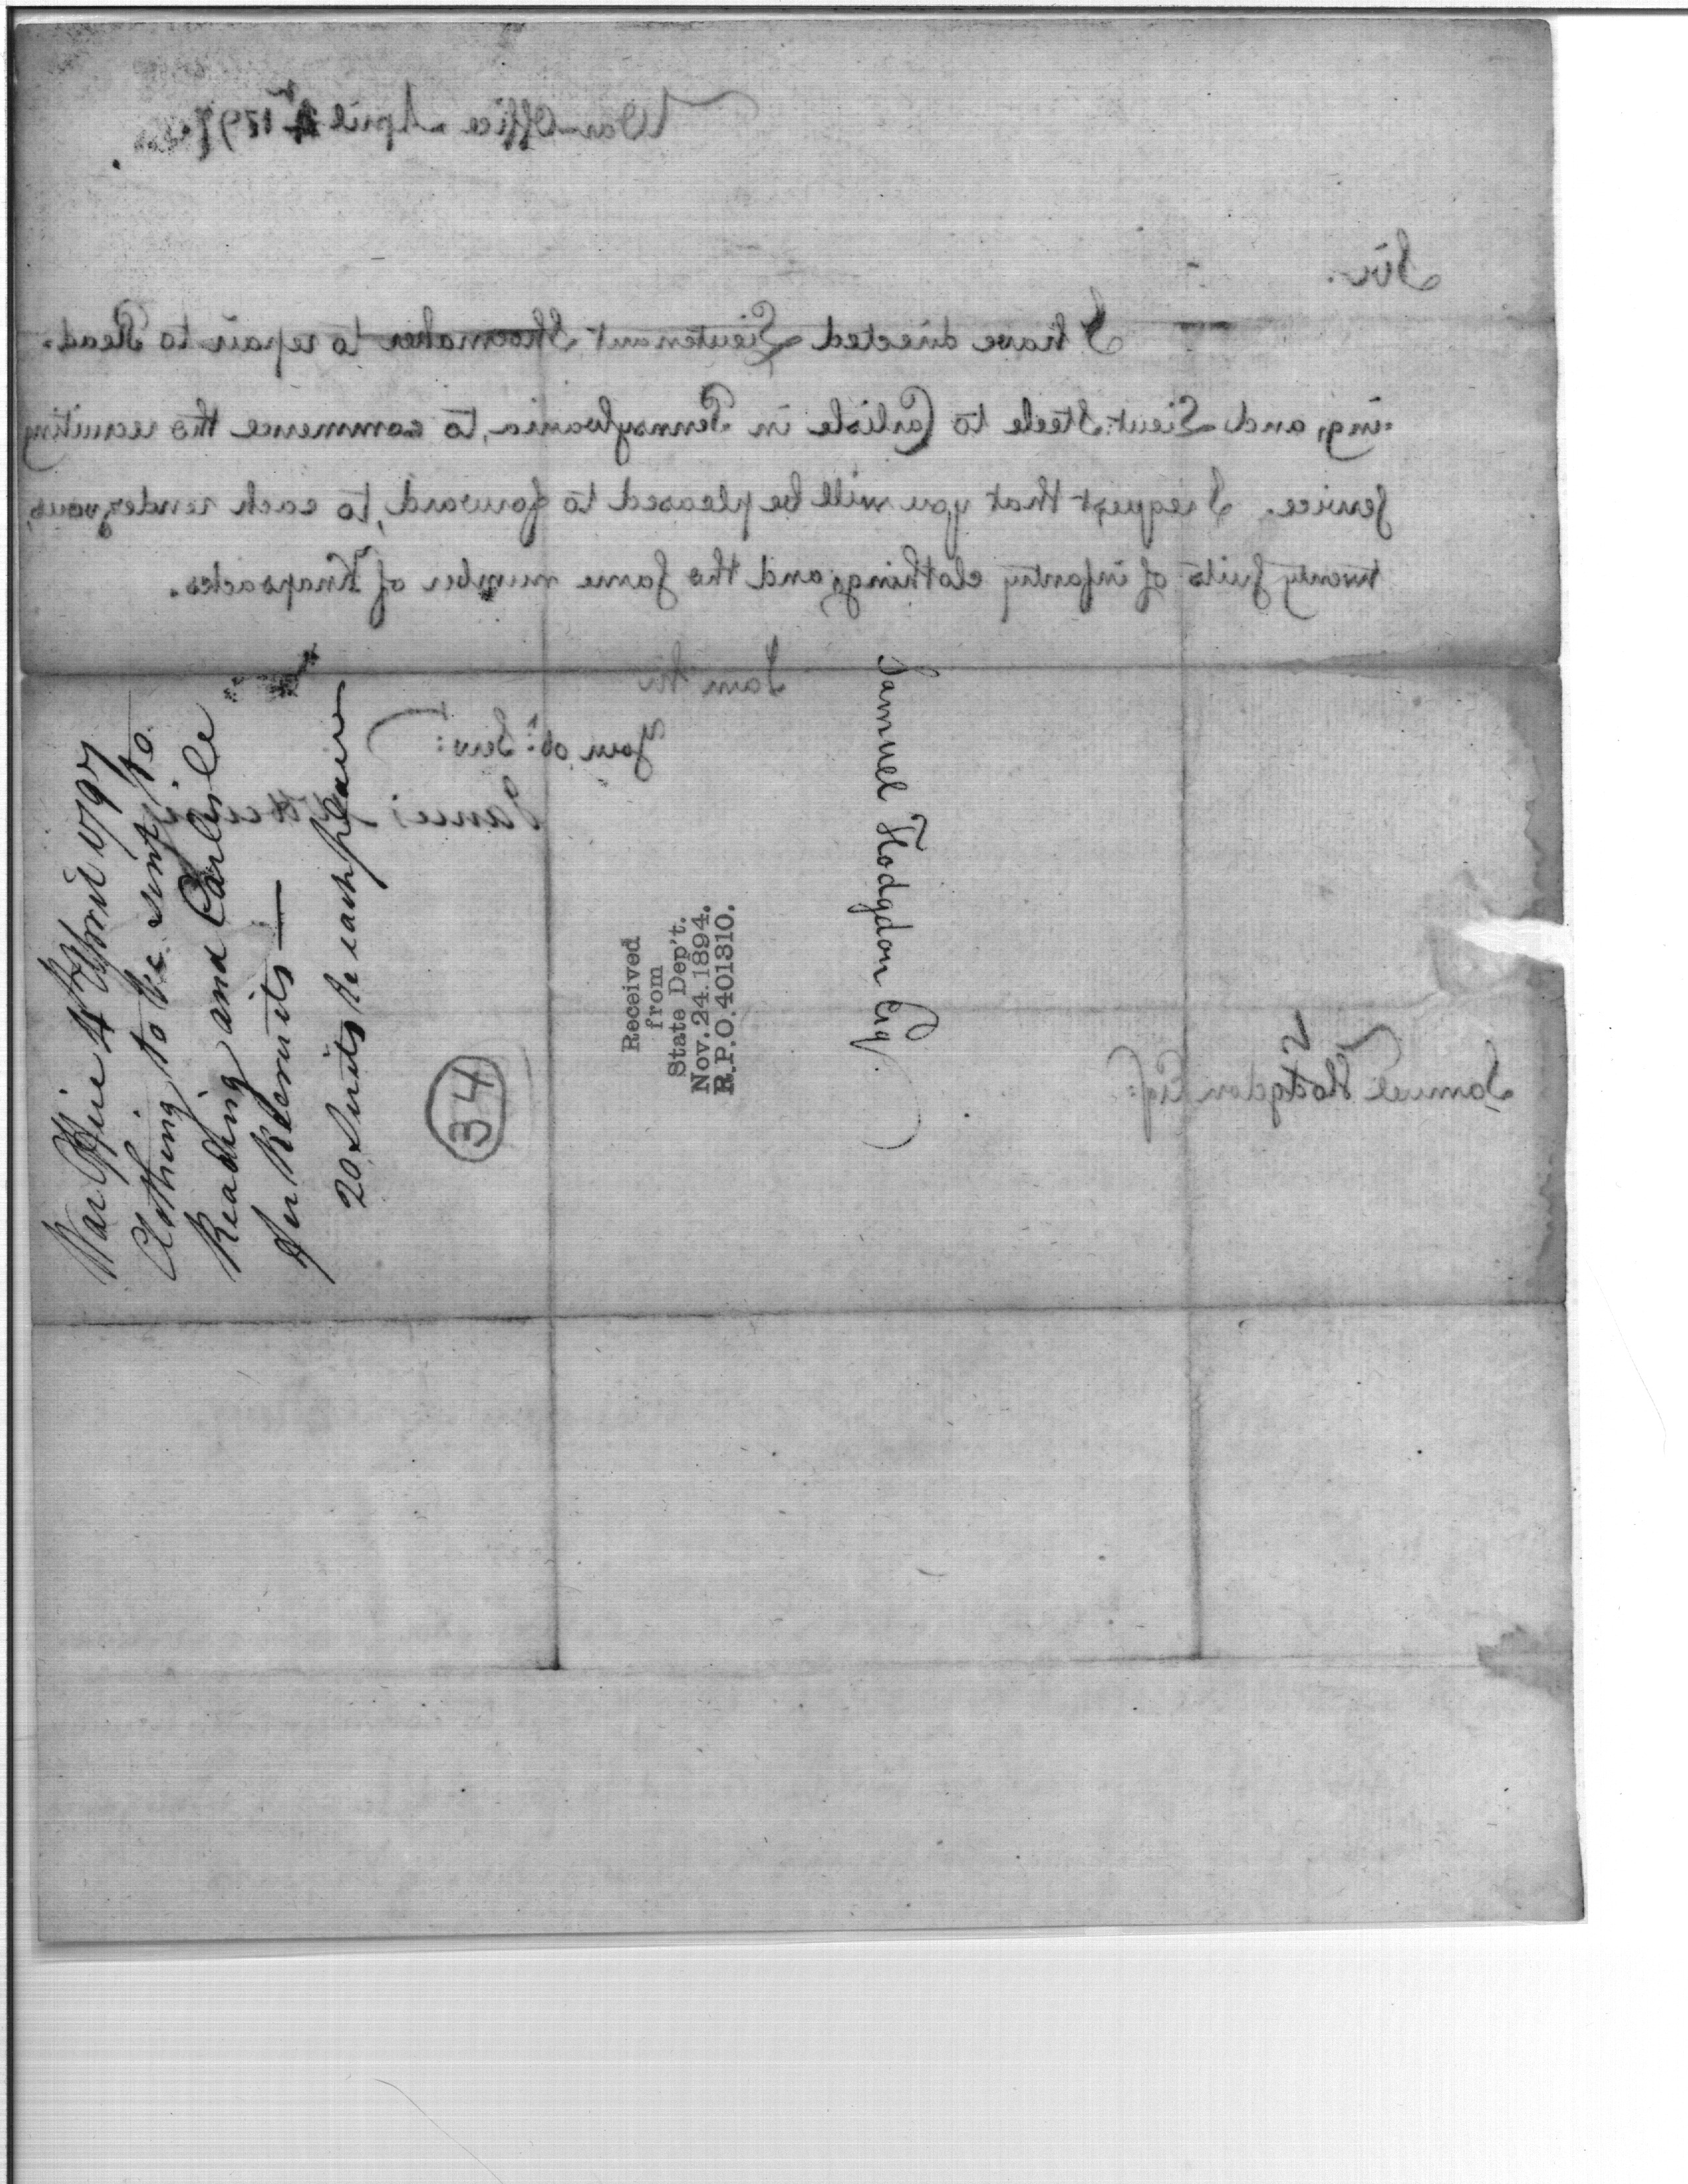 War Office April 4th 1797.
Sir.
I have directed Lieutenant Shoemaker to repair to Read-
-ing, and Lieut. Steele to Carlisle in Pennsylvania, to commence the recruiting
service. I request that you will be pleased to forward, to each rendezvous,
twenty suits of infantry clothing, and the same number of Knapsacks.
I am Sir
Your obt. Servt:
James McHenry
Samuel Hodgdon Esqr:
War Office 4th April 1797
Clothing to be sent to
Reading and Carlisle
for Recruits —
20 Suits to each place
34
Received
from
State Dep't.
Nov. 24. 1894.
R.P.O. 401310.
Samuel Hodgdon Esq.
2